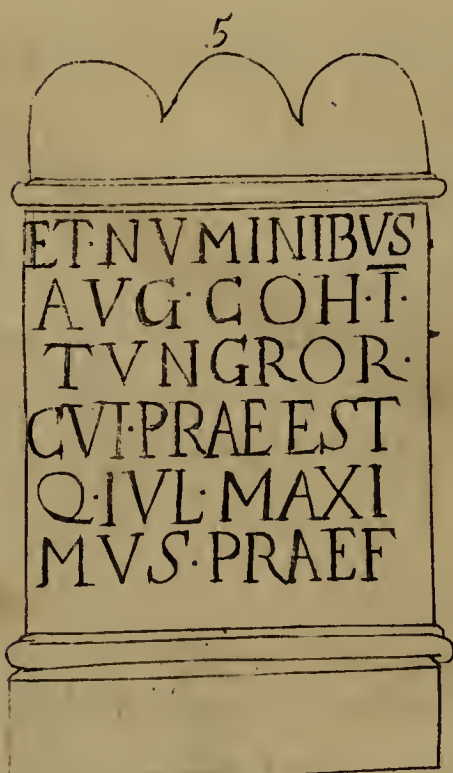 5
ET·NVMINIBVS
AVG·COH·I̅·
TVNGROR·
CVI·PRAEEST
Q·IVL·MAXI
MVS·PRAEF